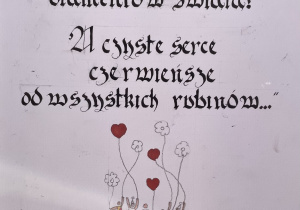 diamentów świata!
A czyste serce
czerwieńsze
od wszystkich rubinów..."